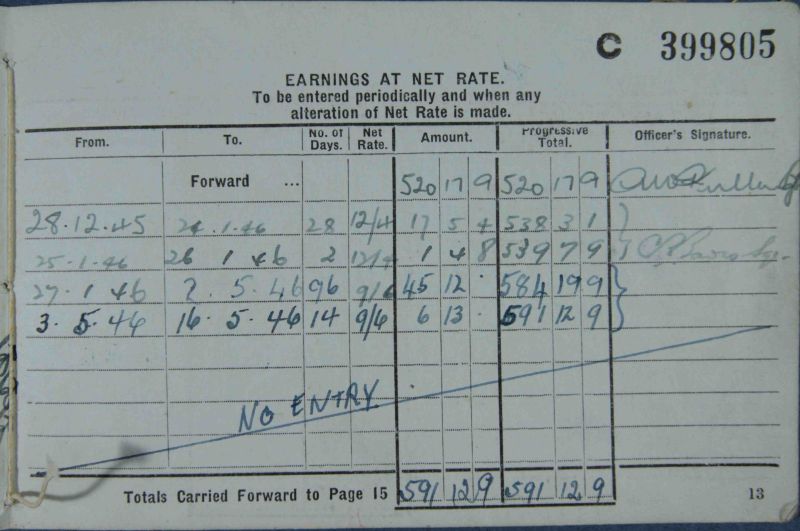 C 399805
EARNINGS AT NET RATE.
To be entered periodically and when any
alteration of Net Rate is made.
From. To. No. of Days. Net Rate. Amount. Progressive Total. Officer's Signature.
Forward ... 520 17 9 520 17 9
28.12.45 24.1.46 28 12/4 17 5 4 538 3 1
25.1.46 26 1 46 2 12/4 1 4 8 539 7 9
27.1 46 2. 5.46 96 9/6 45 12 . 584 19 9
3. 5.46 16. 5.46 14 9/6 6 13 . 591 12 9
NO ENTRY
Totals Carried Forward to Page 15 591 12 9 591 12 9
13